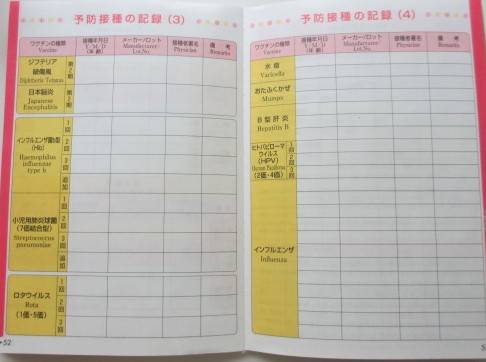 予防接種の記録 (3)
ワクチンの種類 接種年月日 メーカー/ロット 接種者署名 備考
Vaccine Y/M/D Manufacturer Physician Remarks
(年齢) Lot.No.
ジフテリア 第2期
破傷風
Diphtheria Tetanus
日本脳炎 第2期
Japanese
Encephalitis
インフルエンザ菌b型
(Hib)
Haemophilus
influenzae
type b
1回
2回
3回
追加
小児用肺炎球菌
(7価結合型)
Streptococcus
pneumoniae
1回
2回
3回
追加
ロタウイルス
Rota
(1価・5価)
1回
2回
3回
52
予防接種の記録 (4)
ワクチンの種類 接種年月日 メーカー/ロット 接種者署名 備考
Vaccine Y/M/D Manufacturer Physician Remarks
(年齢) Lot.No.
水痘
Varicella
おたふくかぜ
Mumps
B型肝炎
Hepatitis B
ヒトパピローマ
ウイルス
(HPV)
Human Papilloma
(2価・4価)
1回
2回
3回
インフルエンザ
Influenza